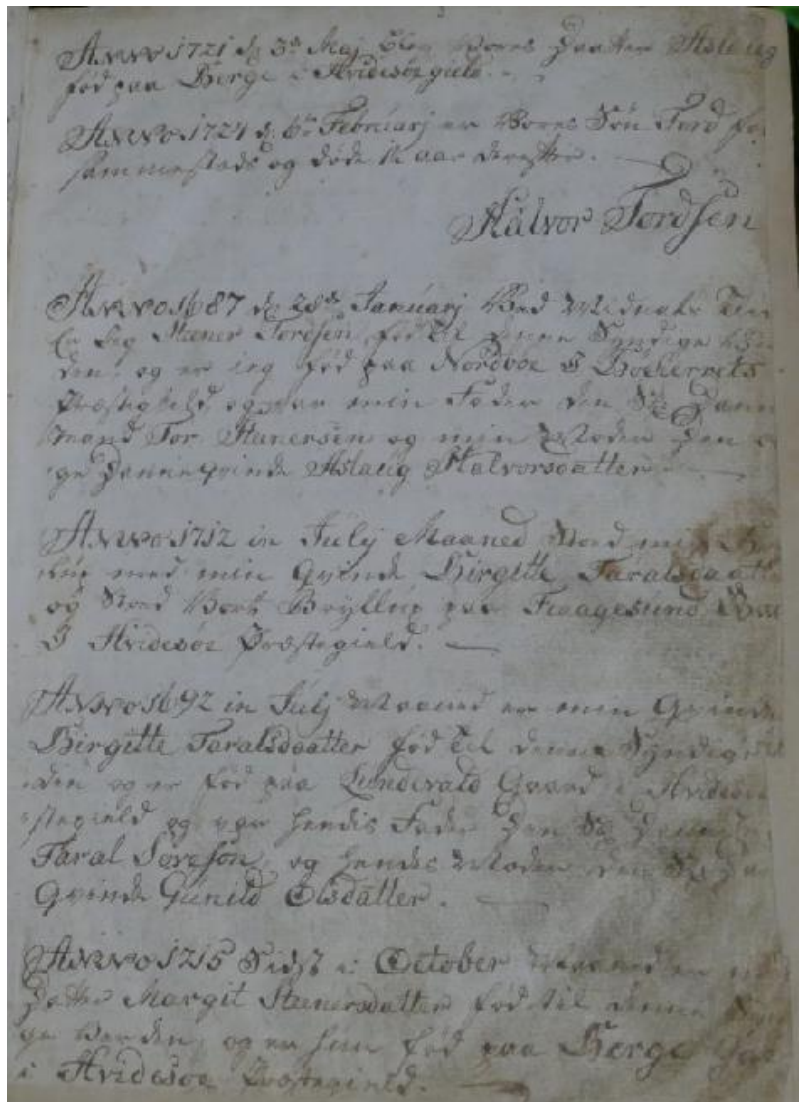 Anno 1721 d. 3de Maj blev Vores Daatter Aslaug
fød paa Berge i Hvidesøe gield.
Anno 1724 d. 6te Februarj er Vores Søn Tord fø
sammesteds og døde 1½ aar derefter.
Halvor Tordsen
Anno 1687 d. 28de Januarj Ved Midnats Tiid
Er Jeg Steener Tordsen fød til denne Syndige
den og er ieg fød paa Nordboe I Hoiherrets
Præstegield og var min Fader den Sl. Danne
mand Tor Steenersen og min Moder Den
ge Dannequinde Aslaug Halvorsdatter
Anno 1712 in Julij Maaned Stod mit
med min Qvinde Birgitte Taralsdaatter
og Stod Vort Bryllup paa Fraagesund
I Hvidesøe Præstegield.
Anno 1692 in Julj Maaned er min Qvinde
Birgitte Taralsdaatter fød til denne Syndige
den og er fød paa Lundevald Gaard i Hvidesøe
stegield og var hendis Fader Den Sl. Danne
Taral Soresøn, og hendes Moder den Sl.
Qvinde Gunild Olsdatter.
Anno 1715 Sidst i October Maaned er
Datter Margit Steenersdatter fød til denne
ge Verden, og er hun fød paa Berge
i Hvidesøe Præstegield.